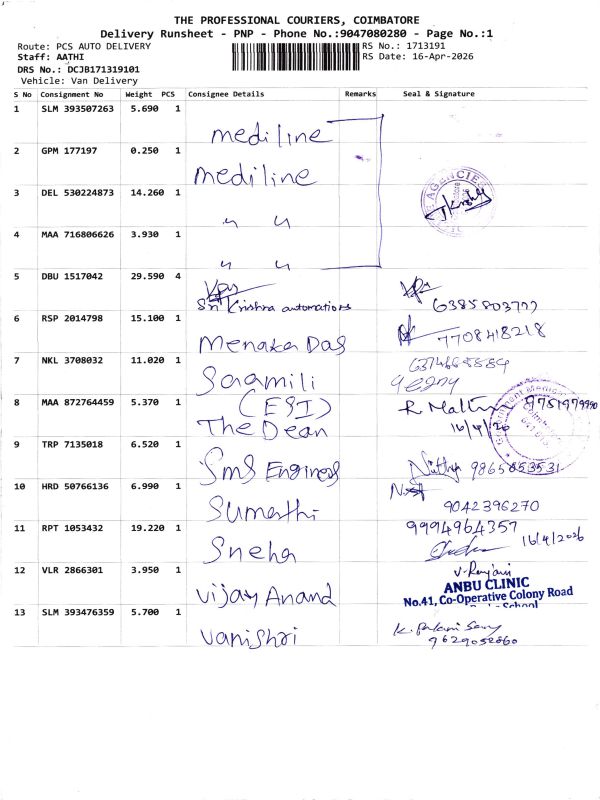 THE PROFESSIONAL COURIERS, COIMBATORE
Delivery Runsheet - PNP - Phone No.:9047080280 - Page No.:1
Route: PCS AUTO DELIVERY
RS No.: 1713191
Staff: AATHI
RS Date: 16-Apr-2026
DRS No.: DCJB171319101
Vehicle: Van Delivery
S No Consignment No Weight PCS Consignee Details Remarks Seal & Signature
1 SLM 393507263 5.690 1 mediline
2 GPM 177197 0.250 1 mediline
3 DEL 530224873 14.260 1 〃 〃
AGENCIES
4 MAA 716806626 3.930 1 〃 〃
5 DBU 1517042 29.590 4 Sri Krishna automations
6 RSP 2014798 15.100 1 Menaka Das 7708418218
7 NKL 3708032 11.020 1 Saamili
8 MAA 872764459 5.370 1 (ESI) The Dean
16/4/26
9 TRP 7135018 6.520 1 Sms Engineers Nithya
10 HRD 50766136 6.990 1 Sumathi
9042396270
11 RPT 1053432 19.220 1 Sneha 9994964357
16/4/2026
12 VLR 2866301 3.950 1 Vijay Anand
ANBU CLINIC
No.41, Co-Operative Colony Road
School
13 SLM 393476359 5.700 1 Vanishri
9629052860